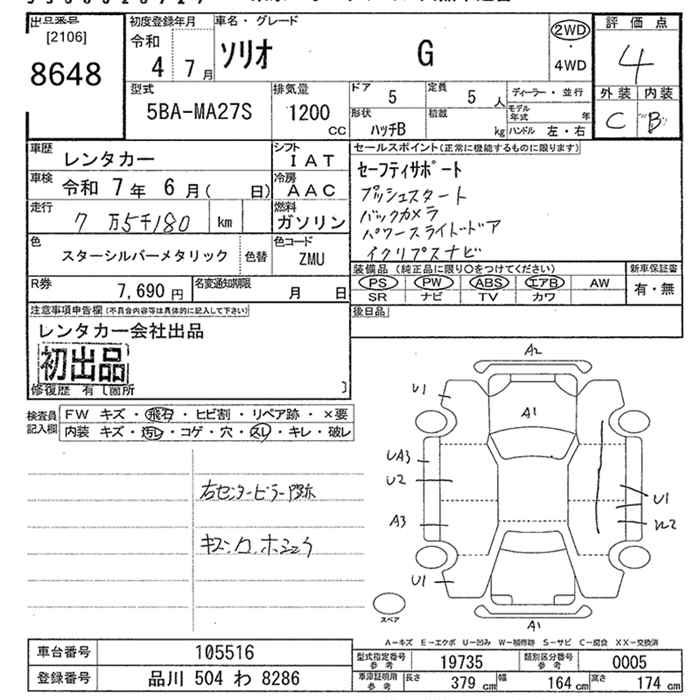 出品番号 初度登録年月 車名・グレード 評価点
[2106] 令和 ソリオ G 2WD
8648 4 年 7 月 4WD 4
型式 排気量 ドア 5 定員 5 人 ディーラー・並行 外装 内装
5BA-MA27S 1200 CC 形状 ハッチB 積載 kg モデル年式 年 ハンドル 左・右 C B
車歴 レンタカー シフト IAT セールスポイント(正常に機能するものに限ります)
車検 令和 7 年 6 月( 日) 冷房 AAC セーフティサポート
走行 7 万5千180 km 燃料 ガソリン プッシュスタート
バックカメラ
パワースライドドア
イクリプスナビ
色 スターシルバーメタリック 色替 色コード ZMU
装備品 (純正品に限り○をつけてください) 新車保証書
R券 7,690 円 名変通知期限 月 日 PS PW ABS エアB AW 有・無
SR ナビ TV カワ
注意事項申告欄 (不具合内容等は具体的に記入して下さい) 後日品
レンタカー会社出品
初出品
修復歴 有 〔箇所 〕
検査員記入欄 FW キズ・飛石・ヒビ割・リペア跡・×要
内装 キズ・汚レ・コゲ・穴・スレ・キレ・破レ
A2
U1
A1
UA3
U2
U1
A3
U1
A1
スペア
A-キズ E-エクボ U-凹み W-補修跡 S-サビ C-腐食 XX-交換済
車台番号 105516 型式指定番号 参考 19735 類別区分番号 参考 0005
登録番号 品川 504 わ 8286 車庫証明用 参考 長さ 379 cm 幅 164 cm 高さ 174 cm